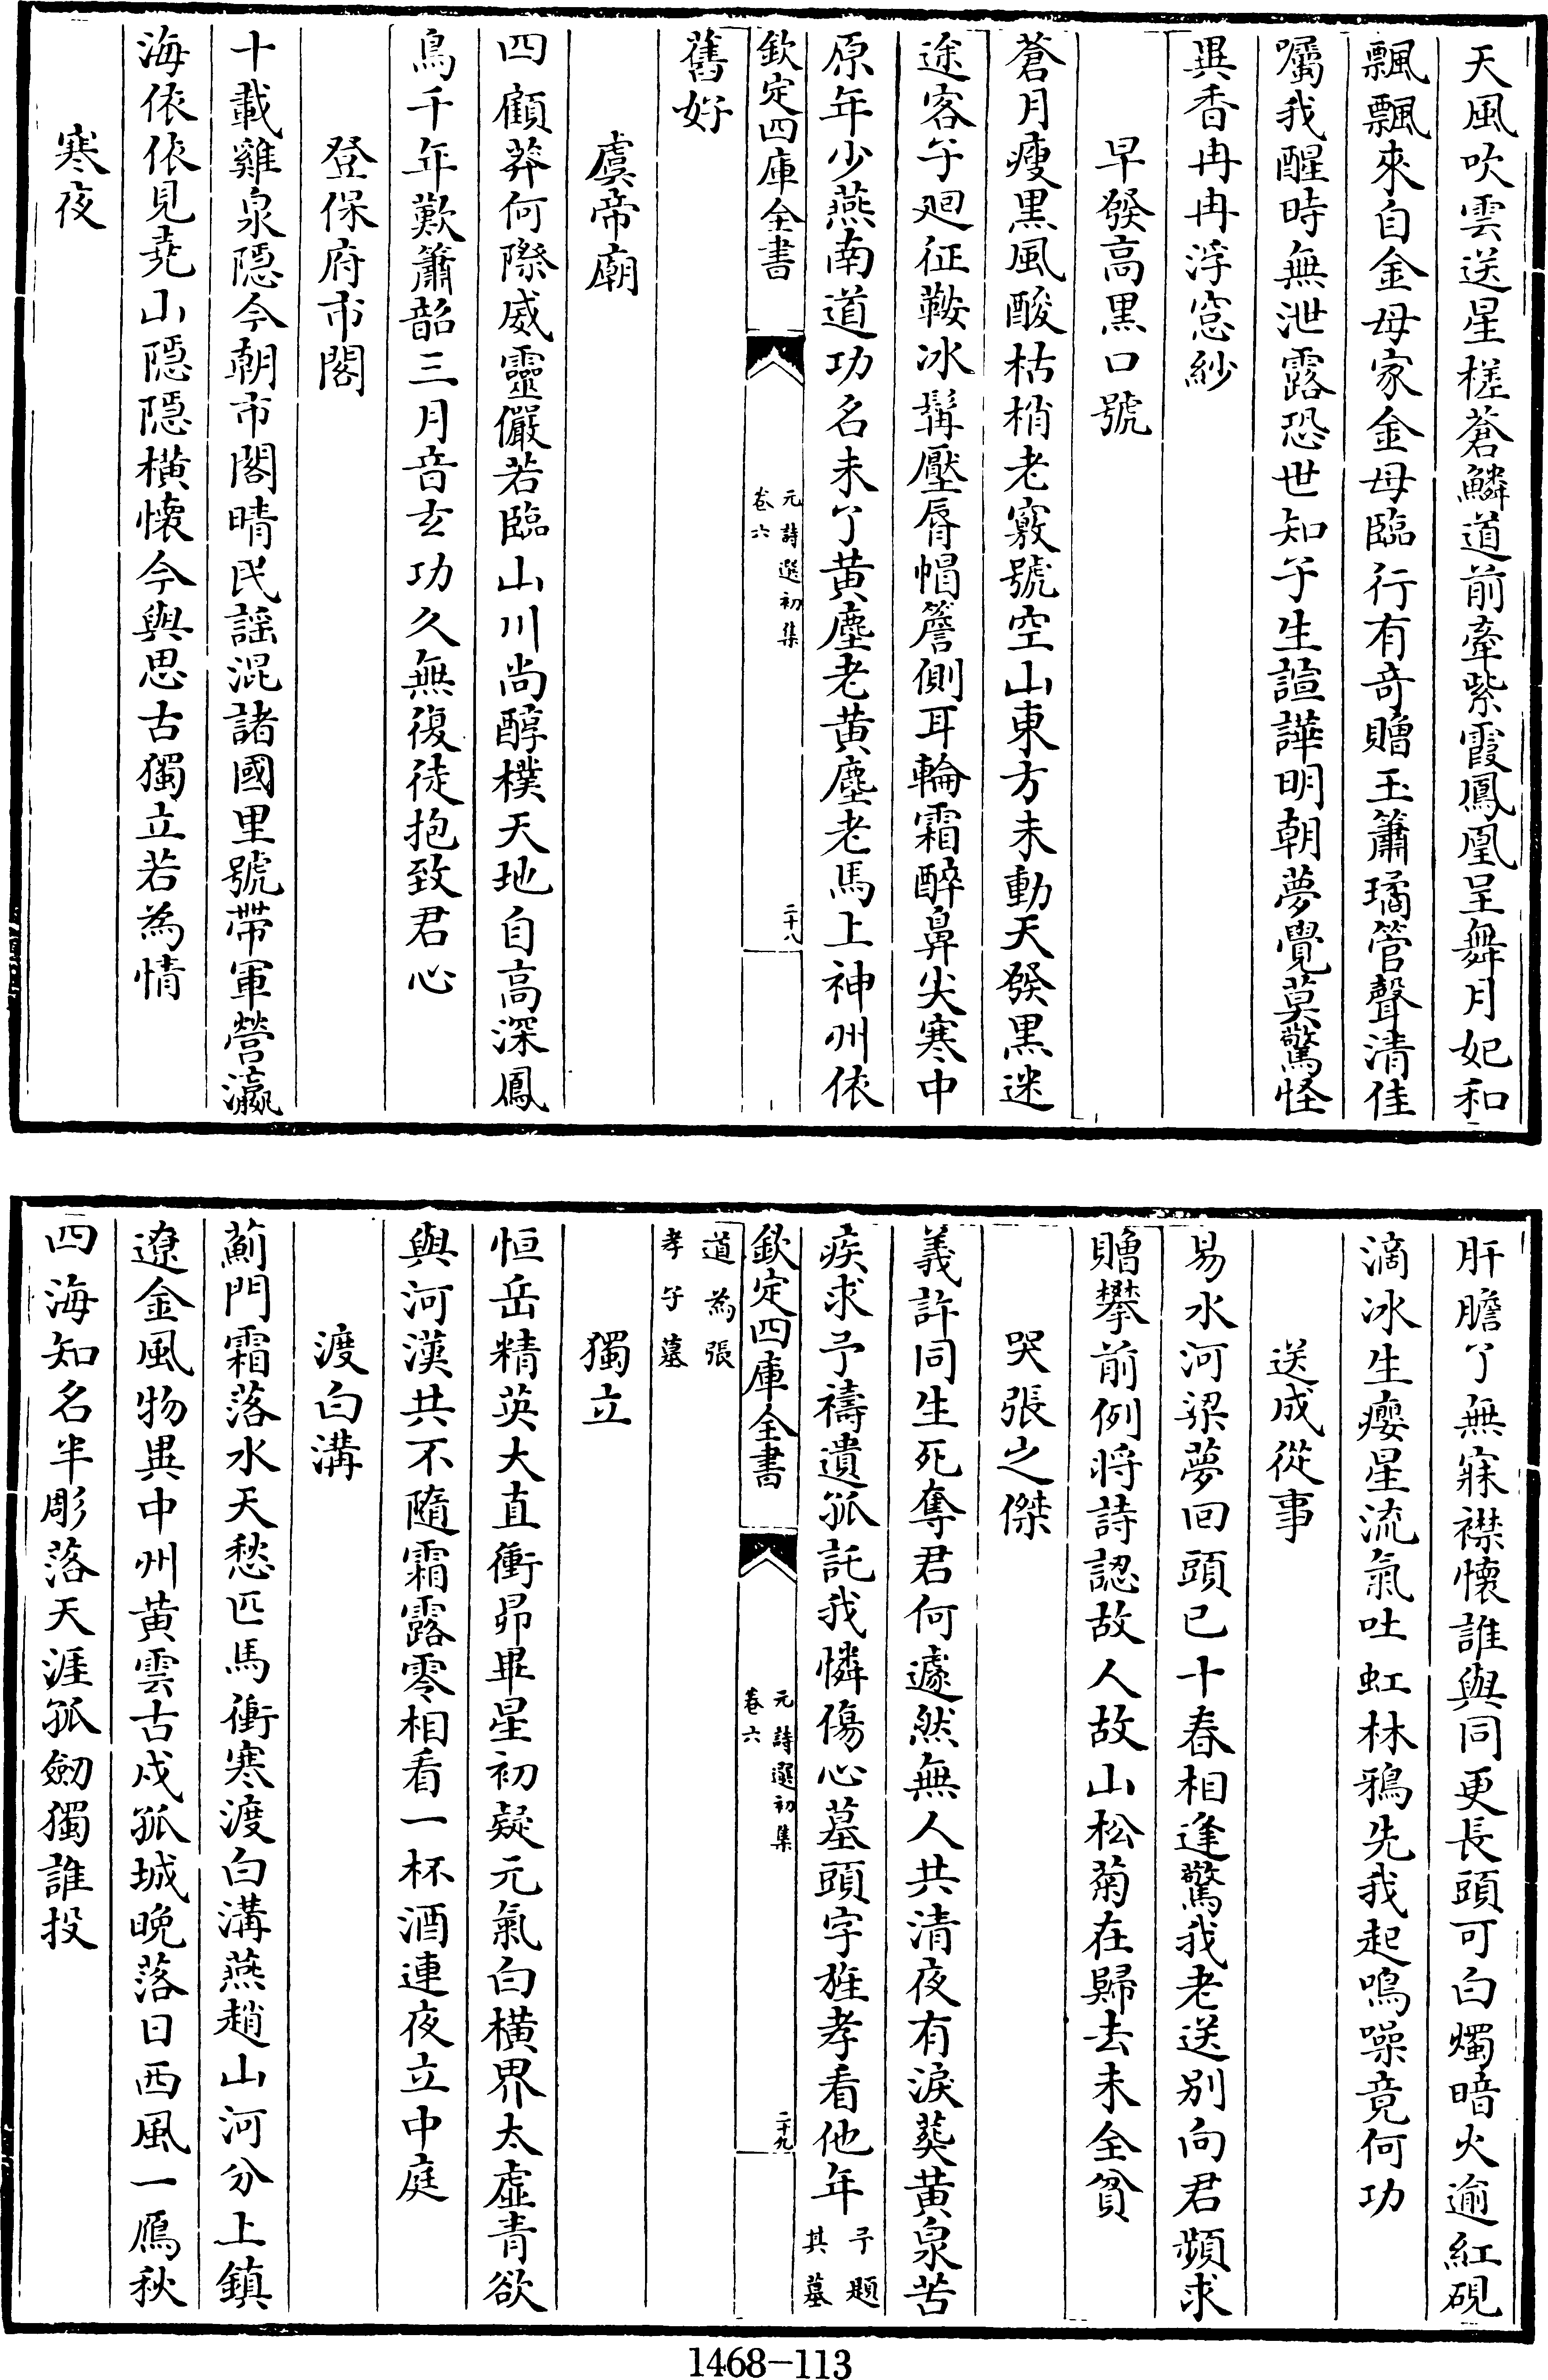 天風吹雲送星槎蒼鱗道前牽紫霞鳳凰呈舞月妃和
飄飄來自金母家金母臨行有竒贈玉簫璚管聲清佳
囑我醒時無泄露恐世知乎生諠譁明朝夢覺莫驚怪
異香冉冉浮窓紗
早發高黒口號
蒼月瘦黒風酸枯梢老竅號空山東方未動天發黒迷
途客乎廻征鞍冰髯壓脣帽簷側耳輪霜醉鼻尖寒中
原年少燕南道功名未了黄塵老黄塵老馬上神州依
欽定四庫全書
元詩選初集
卷六
二十八
舊好
虞帝廟
四顧莽何際威靈儼若臨山川尚醇樸天地自高深鳳
鳥千年歎簫韶三月音玄功久無復徒抱致君心
登保府市閣
十載雞泉隠今朝市閣晴民謡混諸國里號帶軍營瀛
海依依見堯山隠隠横懷今與思古獨立若為情
寒夜
肝膽了無寐襟懷誰與同更長頭可白燭暗火逾紅硯
滴冰生癭星流氣吐虹林鴉先我起鳴噪竟何功
送成從事
易水河梁夢回頭已十春相逢驚我老送别向君頻求
贈攀前例将詩認故人故山松菊在歸去未全貧
哭張之傑
義許同生死奪君何遽然無人共清夜有淚葬黄泉苦
疾求予禱遺孤託我憐傷心墓頭字旌孝看他年予題
其墓
欽定四庫全書
元詩選初集
卷六
二十九
道為張
孝子墓
獨立
恒岳精英大直衝昴畢星初疑元氣白横界太虛青欲
與河漢共不隨霜露零相看一杯酒連夜立中庭
渡白溝
薊門霜落水天愁匹馬衝寒渡白溝燕趙山河分上鎮
遼金風物異中州黄雲古戍孤城晚落日西風一鴈秋
四海知名半彫落天涯孤劒獨誰投
1468-113